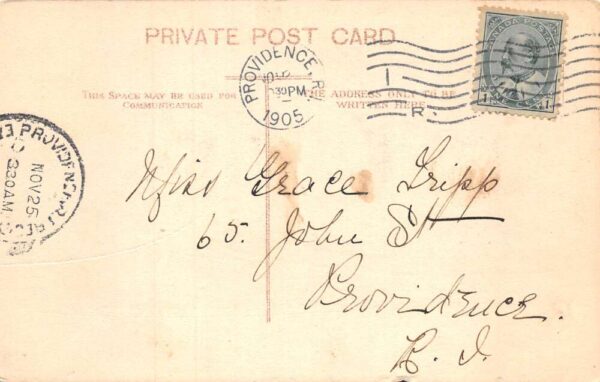 PRIVATE POST CARD
THIS SPACE MAY BE USED FOR
COMMUNICATION
THE ADDRESS ONLY TO BE
WRITTEN HERE
PROVIDENCE, R.I.
30 PM
1905
I
R
CANADA POSTAGE
1 1
PROVIDENCE, R.I.
NOV 25
3 30 AM
REC'D
Miss Grace Tripp
65. John St
Providence.
R. I.